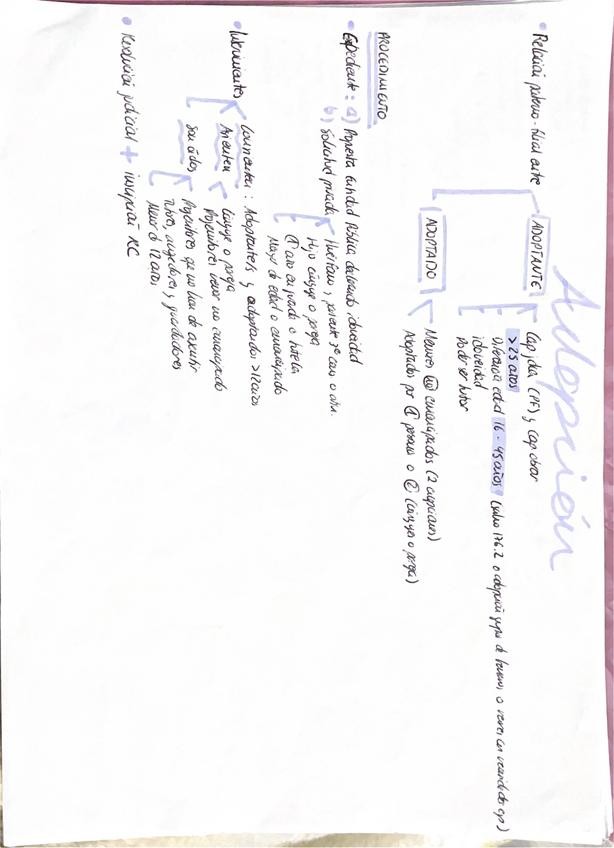 Adopción
• Relación paterno-filial entre
ADOPTANTE
Cap jdca (PF) y cap obrar
>25 años
Diferencia edad 16-45 años (salvo 176.2 o adopción grupo de hermanos o menores con necesidades esp)
idoneidad
Poder ser tutor
ADOPTADO
Menores no emancipados (2 excepciones)
Adoptados por 1 persona o 2 (cónyuges o pareja)
PROCEDIMIENTO
• Expediente: a) Propuesta Entidad Pública declarando idoneidad
b) Solicitud privada
Huérfano y pariente 3º cons o afin.
Hijo cónyuge o pareja
1 año en guarda o tutela
Mayor de edad o emancipado
• Intervinientes
Consienten: Adoptante/s y adoptandos >12 años
Asienten
Cónyuge o pareja
Progenitores menor no emancipado
Son oídos
Progenitores que no han de asentir
Tutores, acogedores y guardadores
Menor de 12 años
• Resolución judicial + inscripción RC